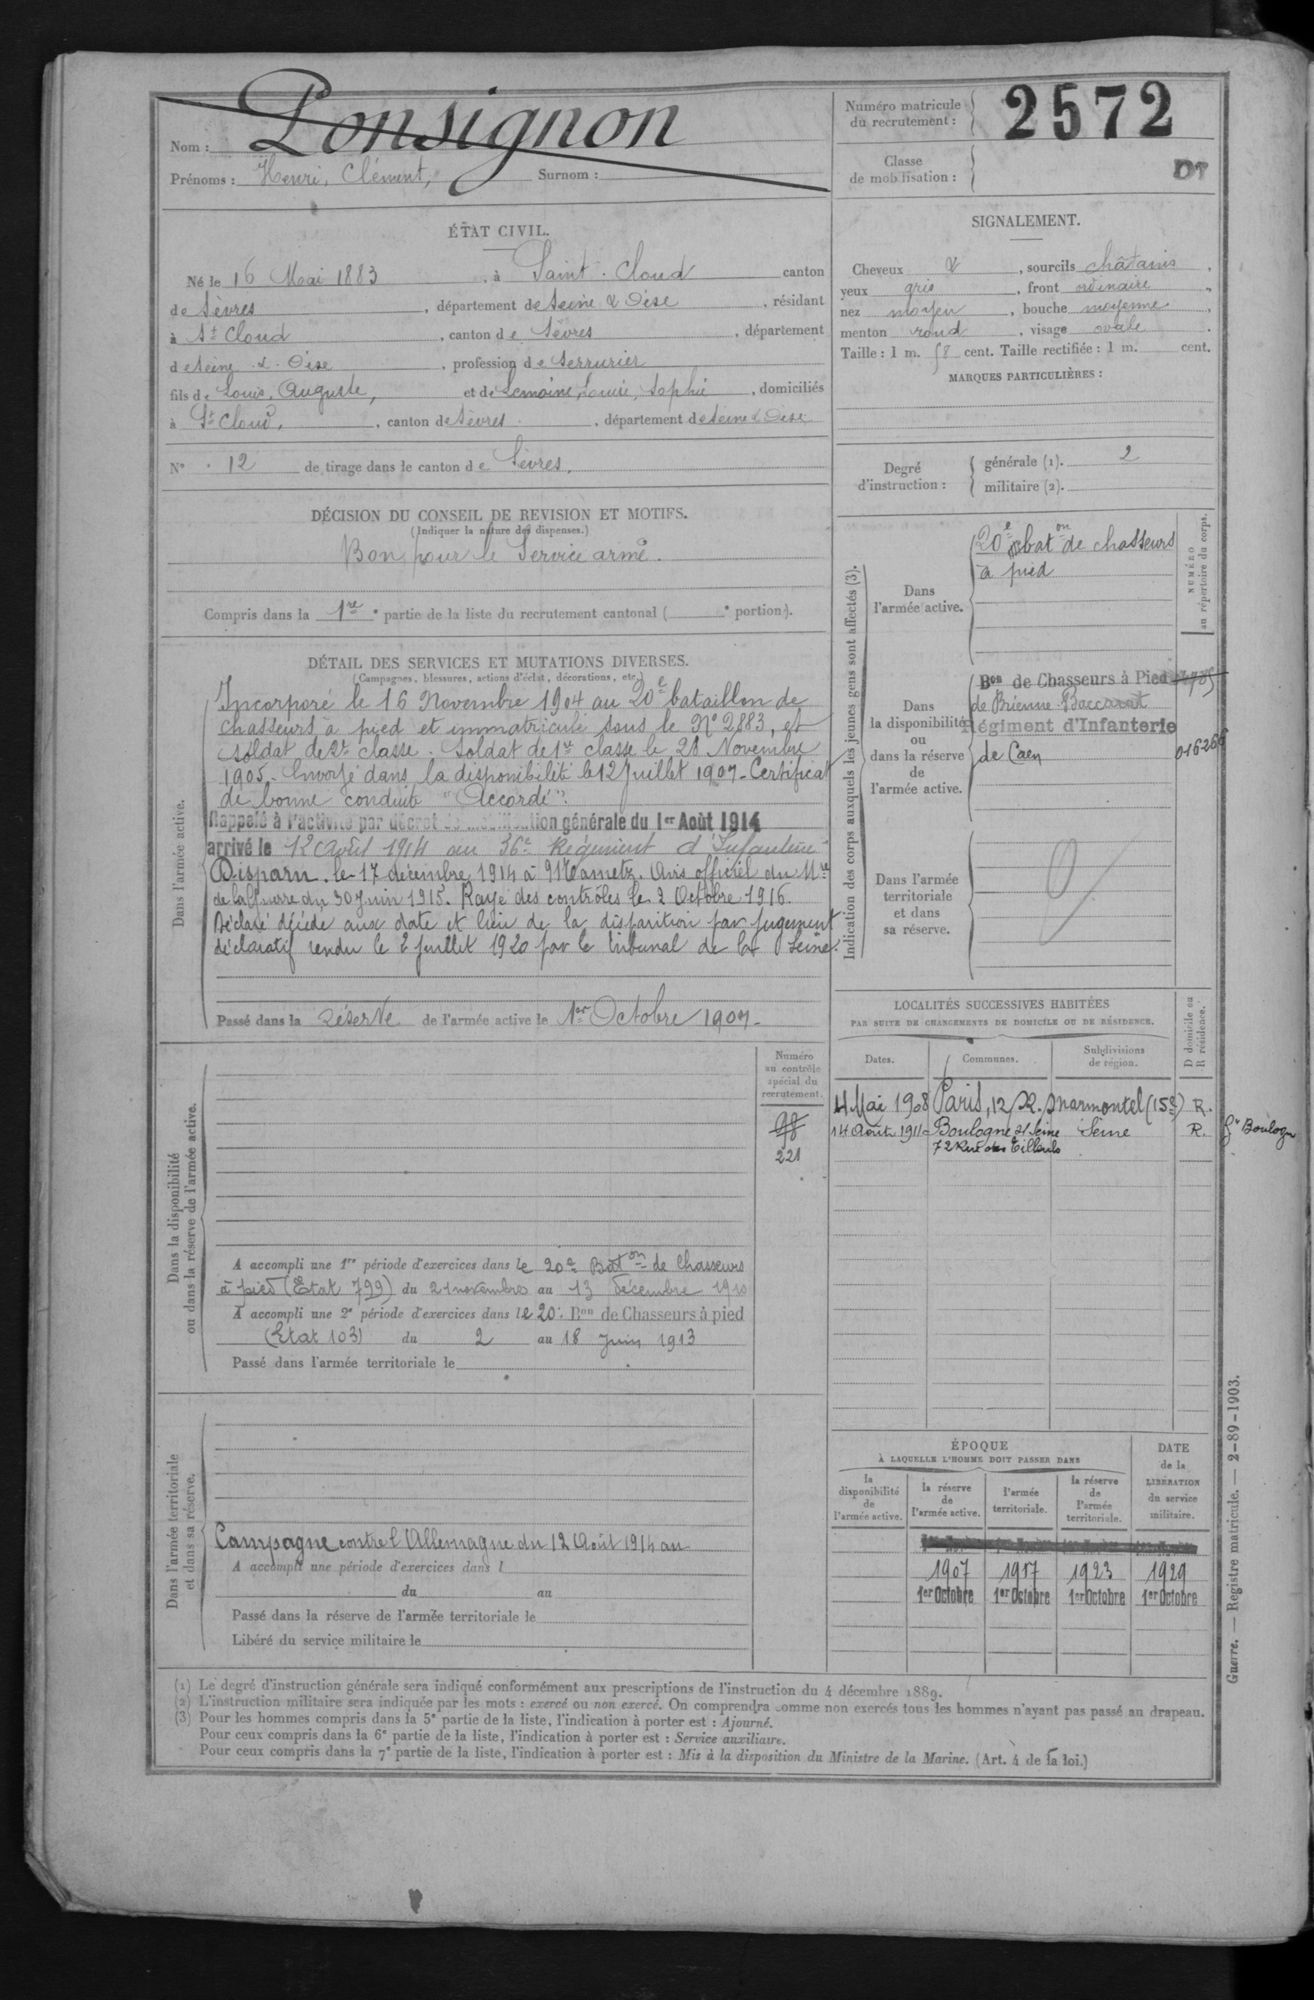 Nom : Ponsignon
Prénoms : Henri, Clément, Surnom :
Numéro matricule du recrutement : 2572
Classe de mobilisation :
DT
ÉTAT CIVIL.
Né le 16 Mai 1883, à Saint-Cloud canton
de Sèvres, département de Seine & Oise, résidant
à St Cloud, canton de Sèvres, département
de Seine & Oise, profession de Serrurier
fils de Louis, Auguste, et de Lemoine, Louise, Sophie, domiciliés
à St Cloud, canton de Sèvres, département de Seine & Oise
N° 12 de tirage dans le canton de Sèvres.
DÉCISION DU CONSEIL DE REVISION ET MOTIFS.
(Indiquer la nature des dispenses.)
Bon pour le Service armé.
Compris dans la 1re partie de la liste du recrutement cantonal ( e portion).
DÉTAIL DES SERVICES ET MUTATIONS DIVERSES.
(Campagnes, blessures, actions d'éclat, décorations, etc.)
Dans l'armée active.
Incorporé le 16 Novembre 1904 au 20e bataillon de
chasseurs à pied et immatriculé sous le N° 2883, et
soldat de 2e classe. Soldat de 1re classe le 28 Novembre
1905. Envoyé dans la disponibilité le 12 Juillet 1907. Certificat
de bonne conduite "Accordé".
Rappelé à l'activité par décret de mobilisation générale du 1er Août 1914
arrivé le 12 Août 1914 au 36e Régiment d'Infanterie
Disparu le 17 décembre 1914 à Mametz. Avis officiel du Mre
de la Guerre du 30 Juin 1915. Rayé des contrôles le 2 Octobre 1916.
Déclaré décédé aux date et lieu de la disparition par jugement
déclaratif rendu le 2 Juillet 1920 par le tribunal de la Seine.
Passé dans la réserve de l'armée active le 1er Octobre 1907.
Dans la disponibilité
ou dans la réserve de l'armée active.
Numéro
au contrôle
spécial du
recrutement.
221
A accompli une 1re période d'exercices dans le 20e Baton de Chasseurs
à pied (Etat 799) du 21 novembre au 13 décembre 1910
A accompli une 2e période d'exercices dans le 20e Bon de Chasseurs à pied
(Etat 103) du 2 au 18 Juin 1913
Passé dans l'armée territoriale le
Dans l'armée territoriale
et dans sa réserve.
Campagne contre l'Allemagne du 12 Août 1914 au
A accompli une période d'exercices dans l
du au
Passé dans la réserve de l'armée territoriale le
Libéré du service militaire le
SIGNALEMENT.
Cheveux &, sourcils châtains,
yeux gris, front ordinaire,
nez moyen, bouche moyenne,
menton rond, visage ovale.
Taille : 1 m. 58 cent. Taille rectifiée : 1 m. cent.
MARQUES PARTICULIÈRES :
Degré d'instruction :
générale (1). 2
militaire (2).
Indication des corps auxquels les jeunes gens sont affectés (3).
NUMÉRO
au répertoire du corps.
Dans
l'armée active.
20e baton de chasseurs
à pied
Dans
la disponibilité
ou
dans la réserve
de
l'armée active.
Bon de Chasseurs à Pied
de Brienne Baccarat
Régiment d'Infanterie
de Caen
016266
Dans l'armée
territoriale
et dans
sa réserve.
LOCALITÉS SUCCESSIVES HABITÉES
PAR SUITE DE CHANGEMENTS DE DOMICILE OU DE RÉSIDENCE.
Dates. Communes. Subdivisions de région. D domicile ou R résidence.
4 Mai 1908 Paris, 12 R. Marmontel (15e) R.
14 Août 1911 Boulogne s/ Seine Seine R.
72 Rue des Tilleuls
Gie Boulogne
ÉPOQUE
À LAQUELLE L'HOMME DOIT PASSER DANS
la disponibilité de l'armée active.
la réserve de l'armée active.
l'armée territoriale.
la réserve de l'armée territoriale.
DATE de la LIBÉRATION du service militaire.
1907 1917 1923 1929
1er Octobre 1er Octobre 1er Octobre 1er Octobre
(1) Le degré d'instruction générale sera indiqué conformément aux prescriptions de l'instruction du 4 décembre 1889.
(2) L'instruction militaire sera indiquée par les mots : exercé ou non exercé. On comprendra comme non exercés tous les hommes n'ayant pas passé au drapeau.
(3) Pour les hommes compris dans la 5e partie de la liste, l'indication à porter est : Ajourné.
Pour ceux compris dans la 6e partie de la liste, l'indication à porter est : Service auxiliaire.
Pour ceux compris dans la 7e partie de la liste, l'indication à porter est : Mis à la disposition du Ministre de la Marine. (Art. 4 de la loi.)
Guerre. — Registre matricule. — 2-89-1903.